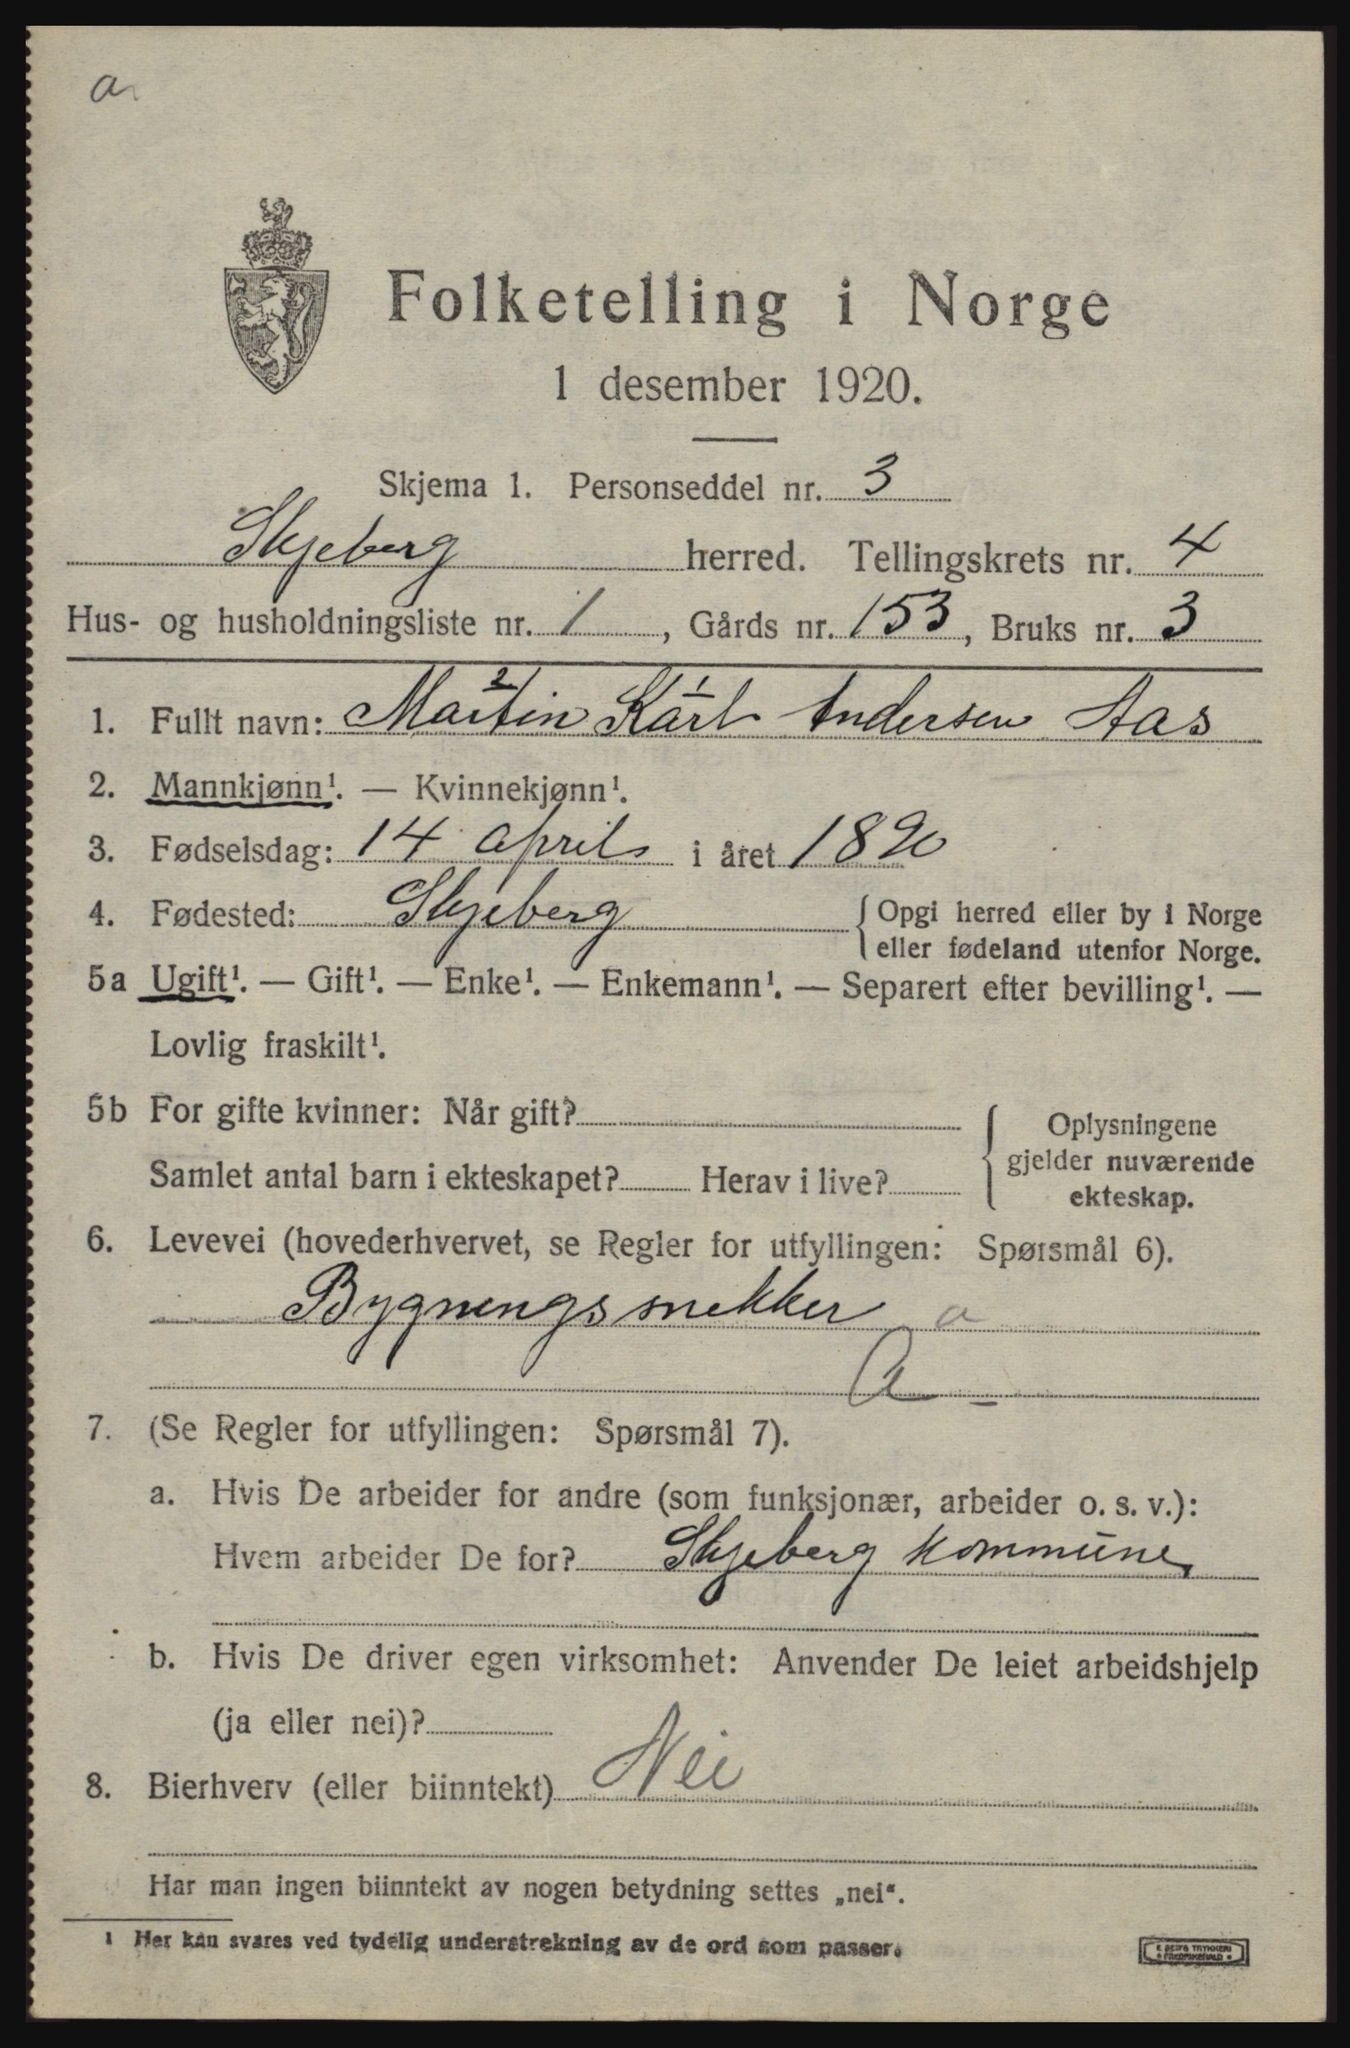 a.
Folketelling i Norge
1 desember 1920.
Skjema 1. Personseddel nr. 3
Skjeberg herred. Tellingskrets nr. 4
Hus- og husholdningsliste nr. 1, Gårds nr. 153, Bruks nr. 3
2 1
1. Fullt navn: Martin Karl Andersen Aas
2. Mannkjønn¹. — Kvinnekjønn¹.
3. Fødselsdag: 14 april i året 1890
4. Fødested: Skjeberg {Opgi herred eller by i Norge
eller fødeland utenfor Norge.
5a Ugift¹. — Gift¹. — Enke¹. — Enkemann¹. — Separert efter bevilling¹. —
Lovlig fraskilt¹.
5b For gifte kvinner: Når gift?
Samlet antal barn i ekteskapet? Herav i live?
{Oplysningene
gjelder nuværende
ekteskap.
6. Levevei (hovederhvervet, se Regler for utfyllingen: Spørsmål 6).
Bygningssnekker a
A —
7. (Se Regler for utfyllingen: Spørsmål 7).
a. Hvis De arbeider for andre (som funksjonær, arbeider o. s. v.):
Hvem arbeider De for? Skjeberg kommune
b. Hvis De driver egen virksomhet: Anvender De leiet arbeidshjelp
(ja eller nei)?
8. Bierhverv (eller biinntekt) Nei
Har man ingen biinntekt av nogen betydning settes „nei“.
¹ Her kan svares ved tydelig understrekning av de ord som passer.
E BERG TRYKKERI
FREDRIKSHALD